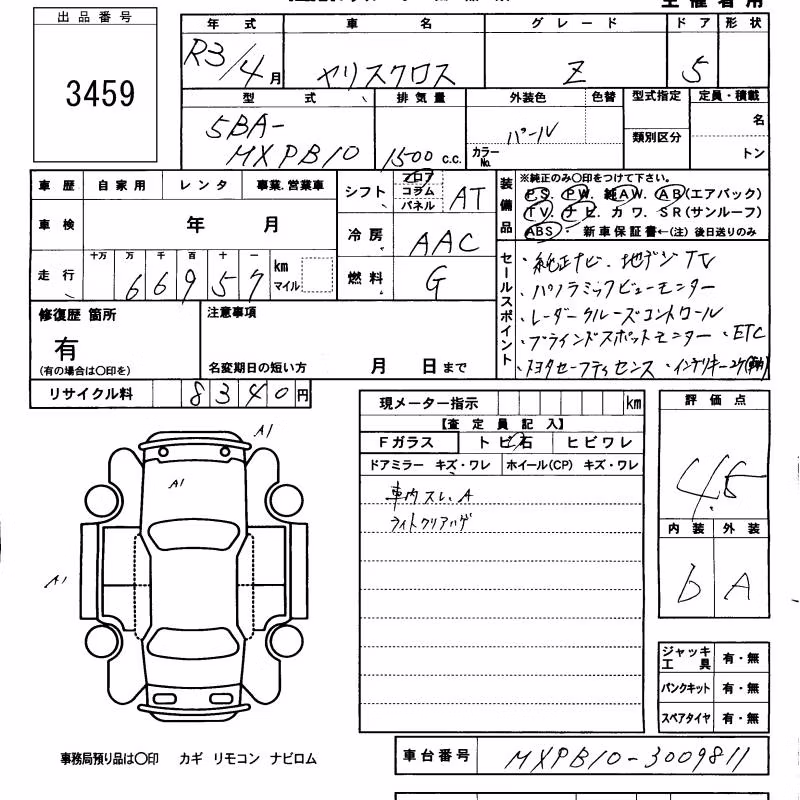 出品番号
3459
年式 車名 グレード ドア 形状
R3/4月 ヤリスクロス Z 5
型式 排気量 外装色 色替 型式指定 定員・積載
5BA-
MXPB10 1500 c.c. パール
カラーNo. 類別区分 名
トン
車歴 自家用 レンタ 事業.営業車
車検 年 月
走行 十万 万 千 百 十 一
66957 km マイル
シフト フロア コラム パネル AT
冷房 AAC
燃料 G
装備品
※純正のみ〇印をつけて下さい。
P.S. P.W. 純AW. AB(エアバック)
TV. ナビ. カワ. SR(サンルーフ)
ABS・ 新車保証書←(注) 後日送りのみ
セールスポイント
・純正ナビ、地デジTV
・パノラミックビューモニター
・レーダークルーズコントロール
・ブラインドスポットモニター ・ETC
・トヨタセーフティセンス ・インテリキー2ケ
修復歴 箇所
有
(有の場合は〇印を)
注意事項
名変期日の短い方 月 日まで
リサイクル料 8340円
現メーター指示 km
【査定員記入】
Fガラス トビ石 ヒビワレ
ドアミラー キズ・ワレ ホイール(CP) キズ・ワレ
車内スレ、A
ライトクリアハゲ
評価点
4.5
内装 外装
b A
A1
A1
A1
ジャッキ工具 有・無
パンクキット 有・無
スペアタイヤ 有・無
事務局預り品は〇印 カギ リモコン ナビロム
車台番号 MXPB10-3009811